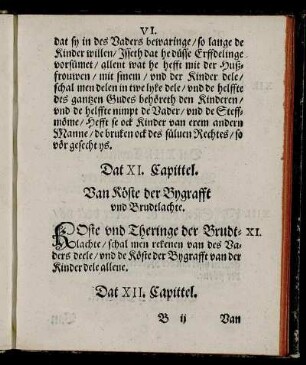 VI.
dat sy in des Vaders bewaringe / so lange de
Kinder willen / Jsseth dat he düsse Erffdelinge
vorsümet / allent wat he hefft mit der Huß-
frouwen / mit sinem / vnd der Kinder dele /
schal men delen in twe lyke dele / vnd de helffte
des gantzen Gudes behöreth den Kinderen /
vnd de helffte nimpt de Vader / vnd de Steff-
möme / Hefft se ock Kinder van erem andern
Manne / de bruken ock des süluen Rechtes / so
vör gesecht ys.
Dat XI. Capittel.
Van Köste der Bygrafft
vnd Brudtlachte.
KOste vnd Theringe der Brudt- XI.
lachte / schal men rekenen van des Va-
ders deele / vnd de Köste der Bygrafft van der
Kinder dele allene.
Dat XII. Capittel.
B ij Van